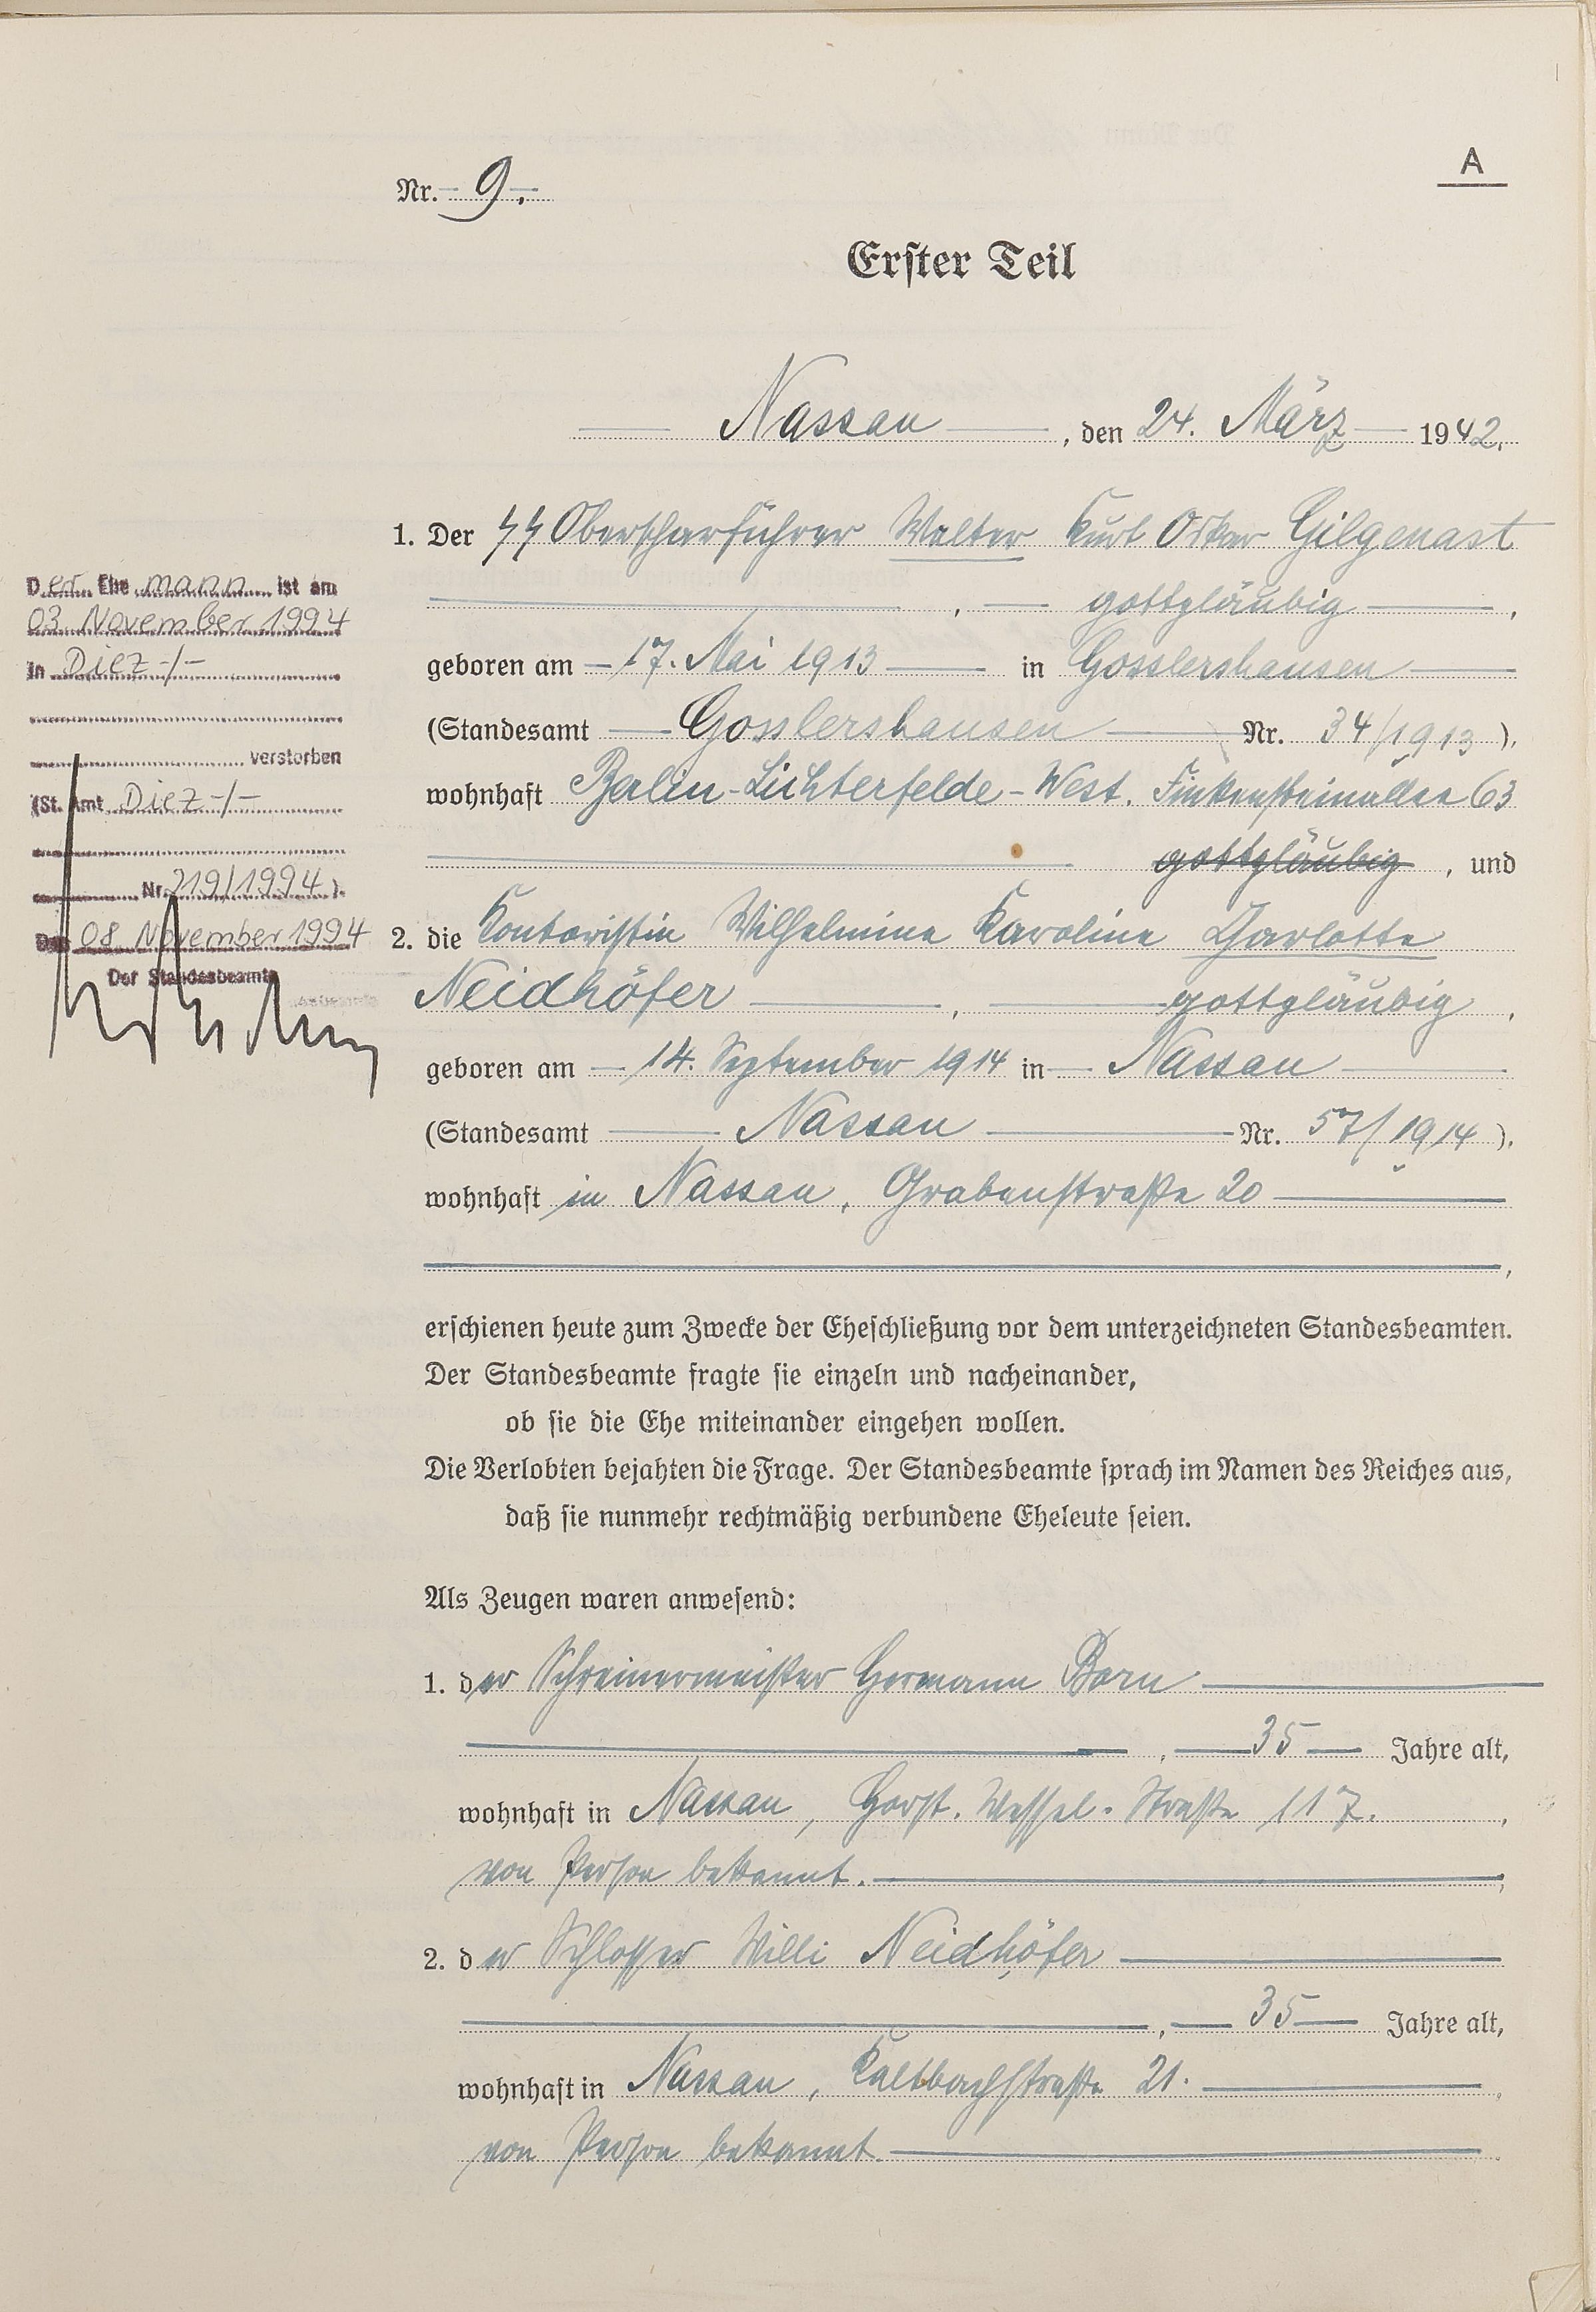 A
Nr. 9.
Erster Teil
Nassau, den 24. März 1942.
1. Der SS Oberscharführer Walter Kurt Oskar Gilgenast
, gottgläubig,
geboren am 17. Mai 1913 in Gosslershausen
(Standesamt Gosslershausen Nr. 34/1913),
wohnhaft Berlin-Lichterfelde-West. Finkensteinallee 63
gottgläubig, und
2. die Kontoristin Wilhelmine Karoline Charlotte
Neidhöfer, gottgläubig,
geboren am 14. September 1914 in Nassau
(Standesamt Nassau Nr. 57/1914),
wohnhaft in Nassau, Grabenstraße 20
,
erschienen heute zum Zwecke der Eheschließung vor dem unterzeichneten Standesbeamten.
Der Standesbeamte fragte sie einzeln und nacheinander,
ob sie die Ehe miteinander eingehen wollen.
Die Verlobten bejahten die Frage. Der Standesbeamte sprach im Namen des Reiches aus,
daß sie nunmehr rechtmäßig verbundene Eheleute seien.
Als Zeugen waren anwesend:
1. der Schreinermeister Hermann Born
, 35 Jahre alt,
wohnhaft in Nassau, Horst. Wessel-Straße 117.,
von Person bekannt.
2. der Schlosser Willi Neidhöfer
, 35 Jahre alt,
wohnhaft in Nassau, Kaltbachstraße 21.
von Person bekannt.
Der Ehemann ist am
03. November 1994
in Diez -/-
verstorben
(St. Amt Diez -/-
Nr. 219/1994).
Den 08. November 1994
Der Standesbeamte